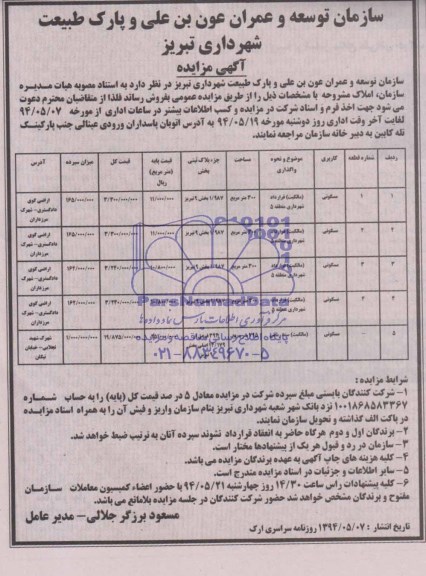 سازمان توسعه و عمران عون بن علی و پارک طبیعت
شهرداری تبریز
آگهی مزایده
سازمان توسعه و عمران عون بن علی و پارک طبیعت شهرداری تبریز در نظر دارد به استناد مصوبه هیات مدیره
سازمان، املاک مشروحه با مشخصات ذیل را از طریق مزایده عمومی بفروش رساند فلذا از متقاضیان محترم دعوت
می شود جهت اخذ فرم و اسناد شرکت در مزایده و کسب اطلاعات بیشتر در ساعات اداری از مورخه ۹۴/۰۵/۰۷
لغایت آخر وقت اداری روز دوشنبه مورخه ۹۴/۰۵/۱۹ به آدرس اتوبان پاسداران ورودی عینالی جنب پارکینگ
تله کابین به دبیر خانه سازمان مراجعه نمایند.
ردیف شماره قطعه کاربری موضوع و نحوه واگذاری مساحت جزء پلاک ثبتی بخش قیمت پایه (متر مربع) ریال قیمت کل میزان سپرده آدرس
۱ ۱ مسکونی (مالکیت) قرارداد شهرداری منطقه ۵ ۳۰۰ متر مربع ۱/۹۸۲ بخش ۹ تبریز ۱۱/۰۰۰/۰۰۰ ۳/۳۰۰/۰۰۰/۰۰۰ ۱۶۵/۰۰۰/۰۰۰ اراضی کوی دادگستری- شهرک مرزداران
۲ ۲ مسکونی (مالکیت) قرارداد شهرداری منطقه ۵ متر مربع بخش ۹ تبریز ۱۱/۰۰۰/۰۰۰ ۳/۳۰۰/۰۰۰/۰۰۰ ۱۶۵/۰۰۰/۰۰۰ اراضی کوی دادگستری- شهرک مرزداران
۳ ۳ مسکونی (مالکیت) قرارداد شهرداری منطقه ۵ ۳۰۰ متر مربع تبریز ۳/۲۴۰/۰۰۰/۰۰۰ ۱۶۲/۰۰۰/۰۰۰ اراضی کوی دادگستری- شهرک مرزداران
۴ مسکونی شهرداری منطقه ۵ ۳/۲۴۰/۰۰۰/۰۰۰ ۱۶۲/۰۰۰/۰۰۰ اراضی کوی دادگستری- شهرک مرزداران
۵ مسکونی شهرک شهید خیابان نیکان
ParsNamadData
مرکز فرآوری اطلاعات پارس نماد داده ها
پایگاه اطلاع رسانی مناقصه و مزایده
۰۲۱-۸۸۳۴۹۶۷۰-۵
شرایط مزایده :
۱- شرکت کنندگان بایستی مبلغ سپرده شرکت در مزایده معادل ۵ در صد قیمت کل (پایه) را به حساب شماره
۱۰۰۱۸۶۸۵۸۳۳۶۷ نزد بانک شهر شعبه شهرداری تبریز بنام سازمان واریز و فیش آن را به همراه اسناد مزایده
در پاکت الف گذاشته و تحویل سازمان نمایند.
۲- برندگان اول و دوم هرگاه حاضر به انعقاد قرارداد نشوند سپرده آنان به ترتیب ضبط خواهد شد.
۳- سازمان در رد و قبول هر یک از پیشنهادها مختار است.
۴- کلیه هزینه های چاپ آگهی به عهده برندگان مزایده می باشد.
۵- سایر اطلاعات و جزئیات در اسناد مزایده مندرج است.
۶- کلیه پیشنهادات راس ساعت ۱۴/۳۰ روز چهارشنبه ۹۴/۰۵/۲۱ با حضور اعضاء کمیسیون معاملات سازمان
مفتوح و برندگان مشخص خواهد شد حضور شرکت کنندگان در جلسه مزایده بلامانع می باشد.
مسعود برزگر جلالی- مدیر عامل
تاریخ انتشار : ۱۳۹۴/۰۵/۰۷ روزنامه سراسری ارک